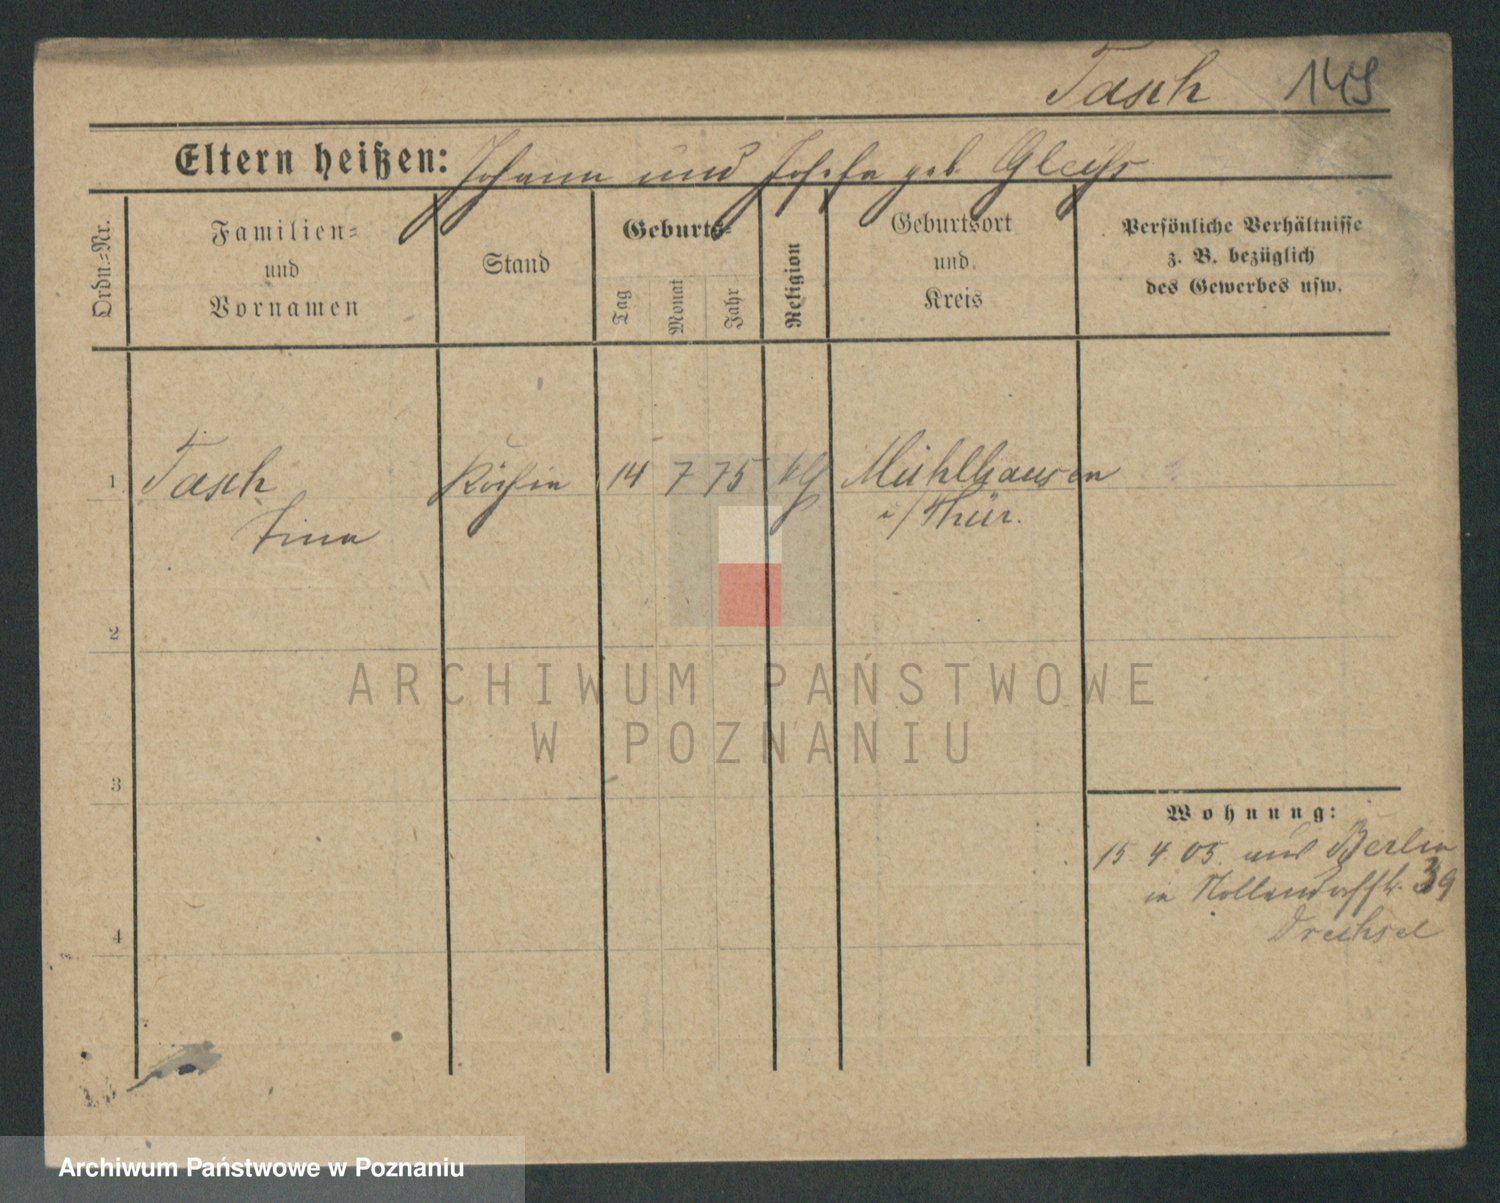 Tasch 149
Eltern heißen: Johann und Josefa geb. Gleihs
Ordn.-Nr.
Familien- und Vornamen
Stand
Geburts-
Tag
Monat
Jahr
Religion
Geburtsort und Kreis
Persönliche Verhältnisse
z. B. bezüglich
des Gewerbes usw.
1 Tasch Köchin 14 7 75 Mühlhausen
Tina i/Thür.
2
ARCHIWUM PAŃSTWOWE
W POZNANIU
3
Wohnung:
15 4 05. aus Berlin
in Nollendorffstr. 39
Drechsel
4
Archiwum Państwowe w Poznaniu